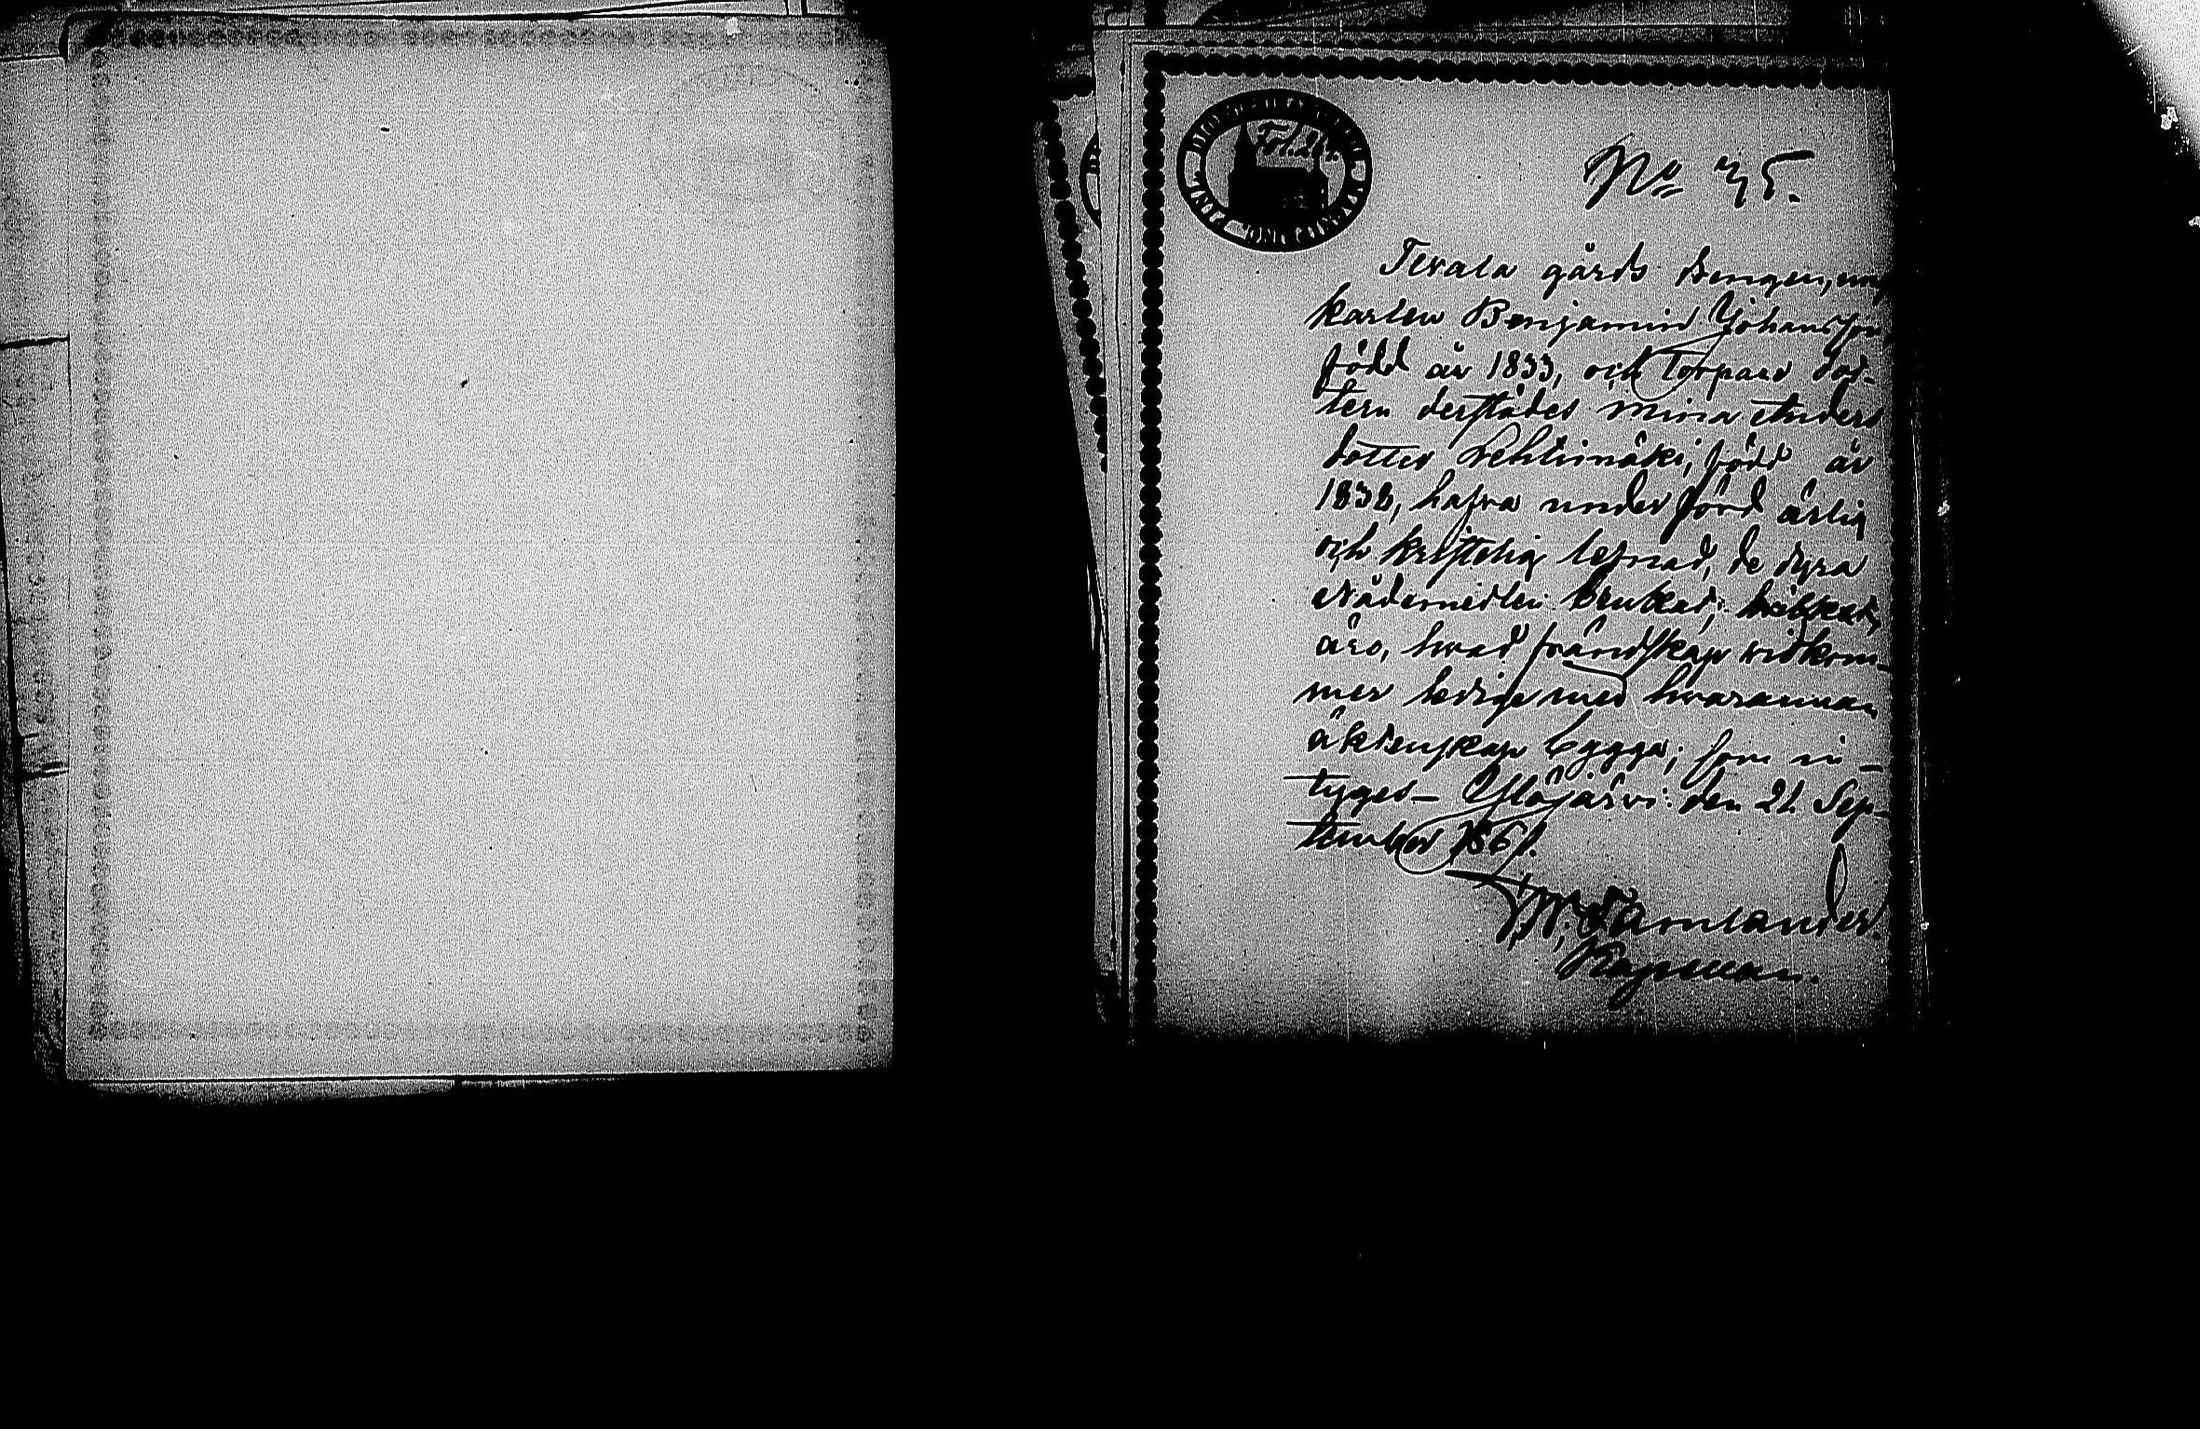 Fol. 21.
No 75.
Tevala gårds drengen, ung
karlen Benjamin Johansson
född år 1833, och Torpare dot-
tern derstädes Mina Anders
dotter Lehtimäki, född år
1838, hafva under förd ärlig
och kristelig lefnad, de dyra
Nådemedlen brukat;
äro, hvad frändskap vidkom-
mer ledige med hvarannan
äktenskap bygga; som in-
tyges – Ylöjärvi den 21 Sep-
tember 1861.
Kapellan.